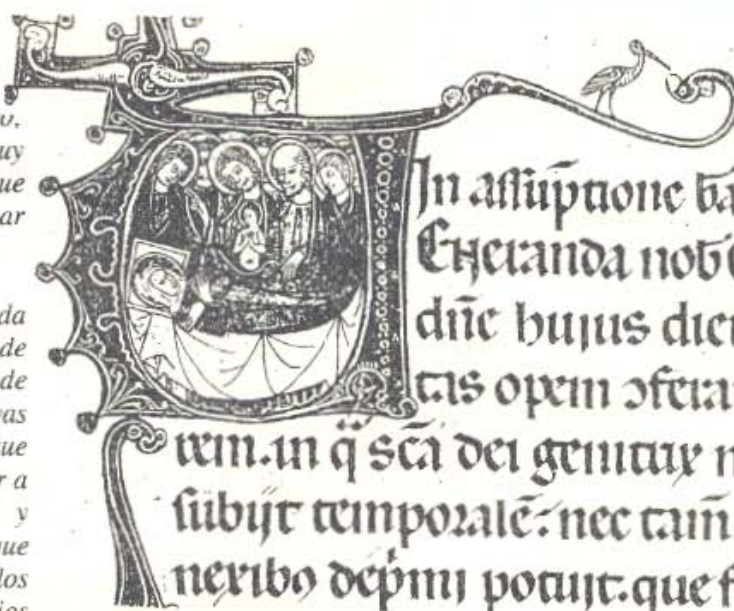 o,
uy
ue
ar
da
de
de
vas
ue
r a
y
que
los
ios
In assūptione ba
Eneranda nob
dn̄e hujus diei
tas opem ↄfera
tem. in q̄ scā dei genitrix m
subijt temporalē: nec tam̄
nexibꝰ dep̄mi potuit. que f